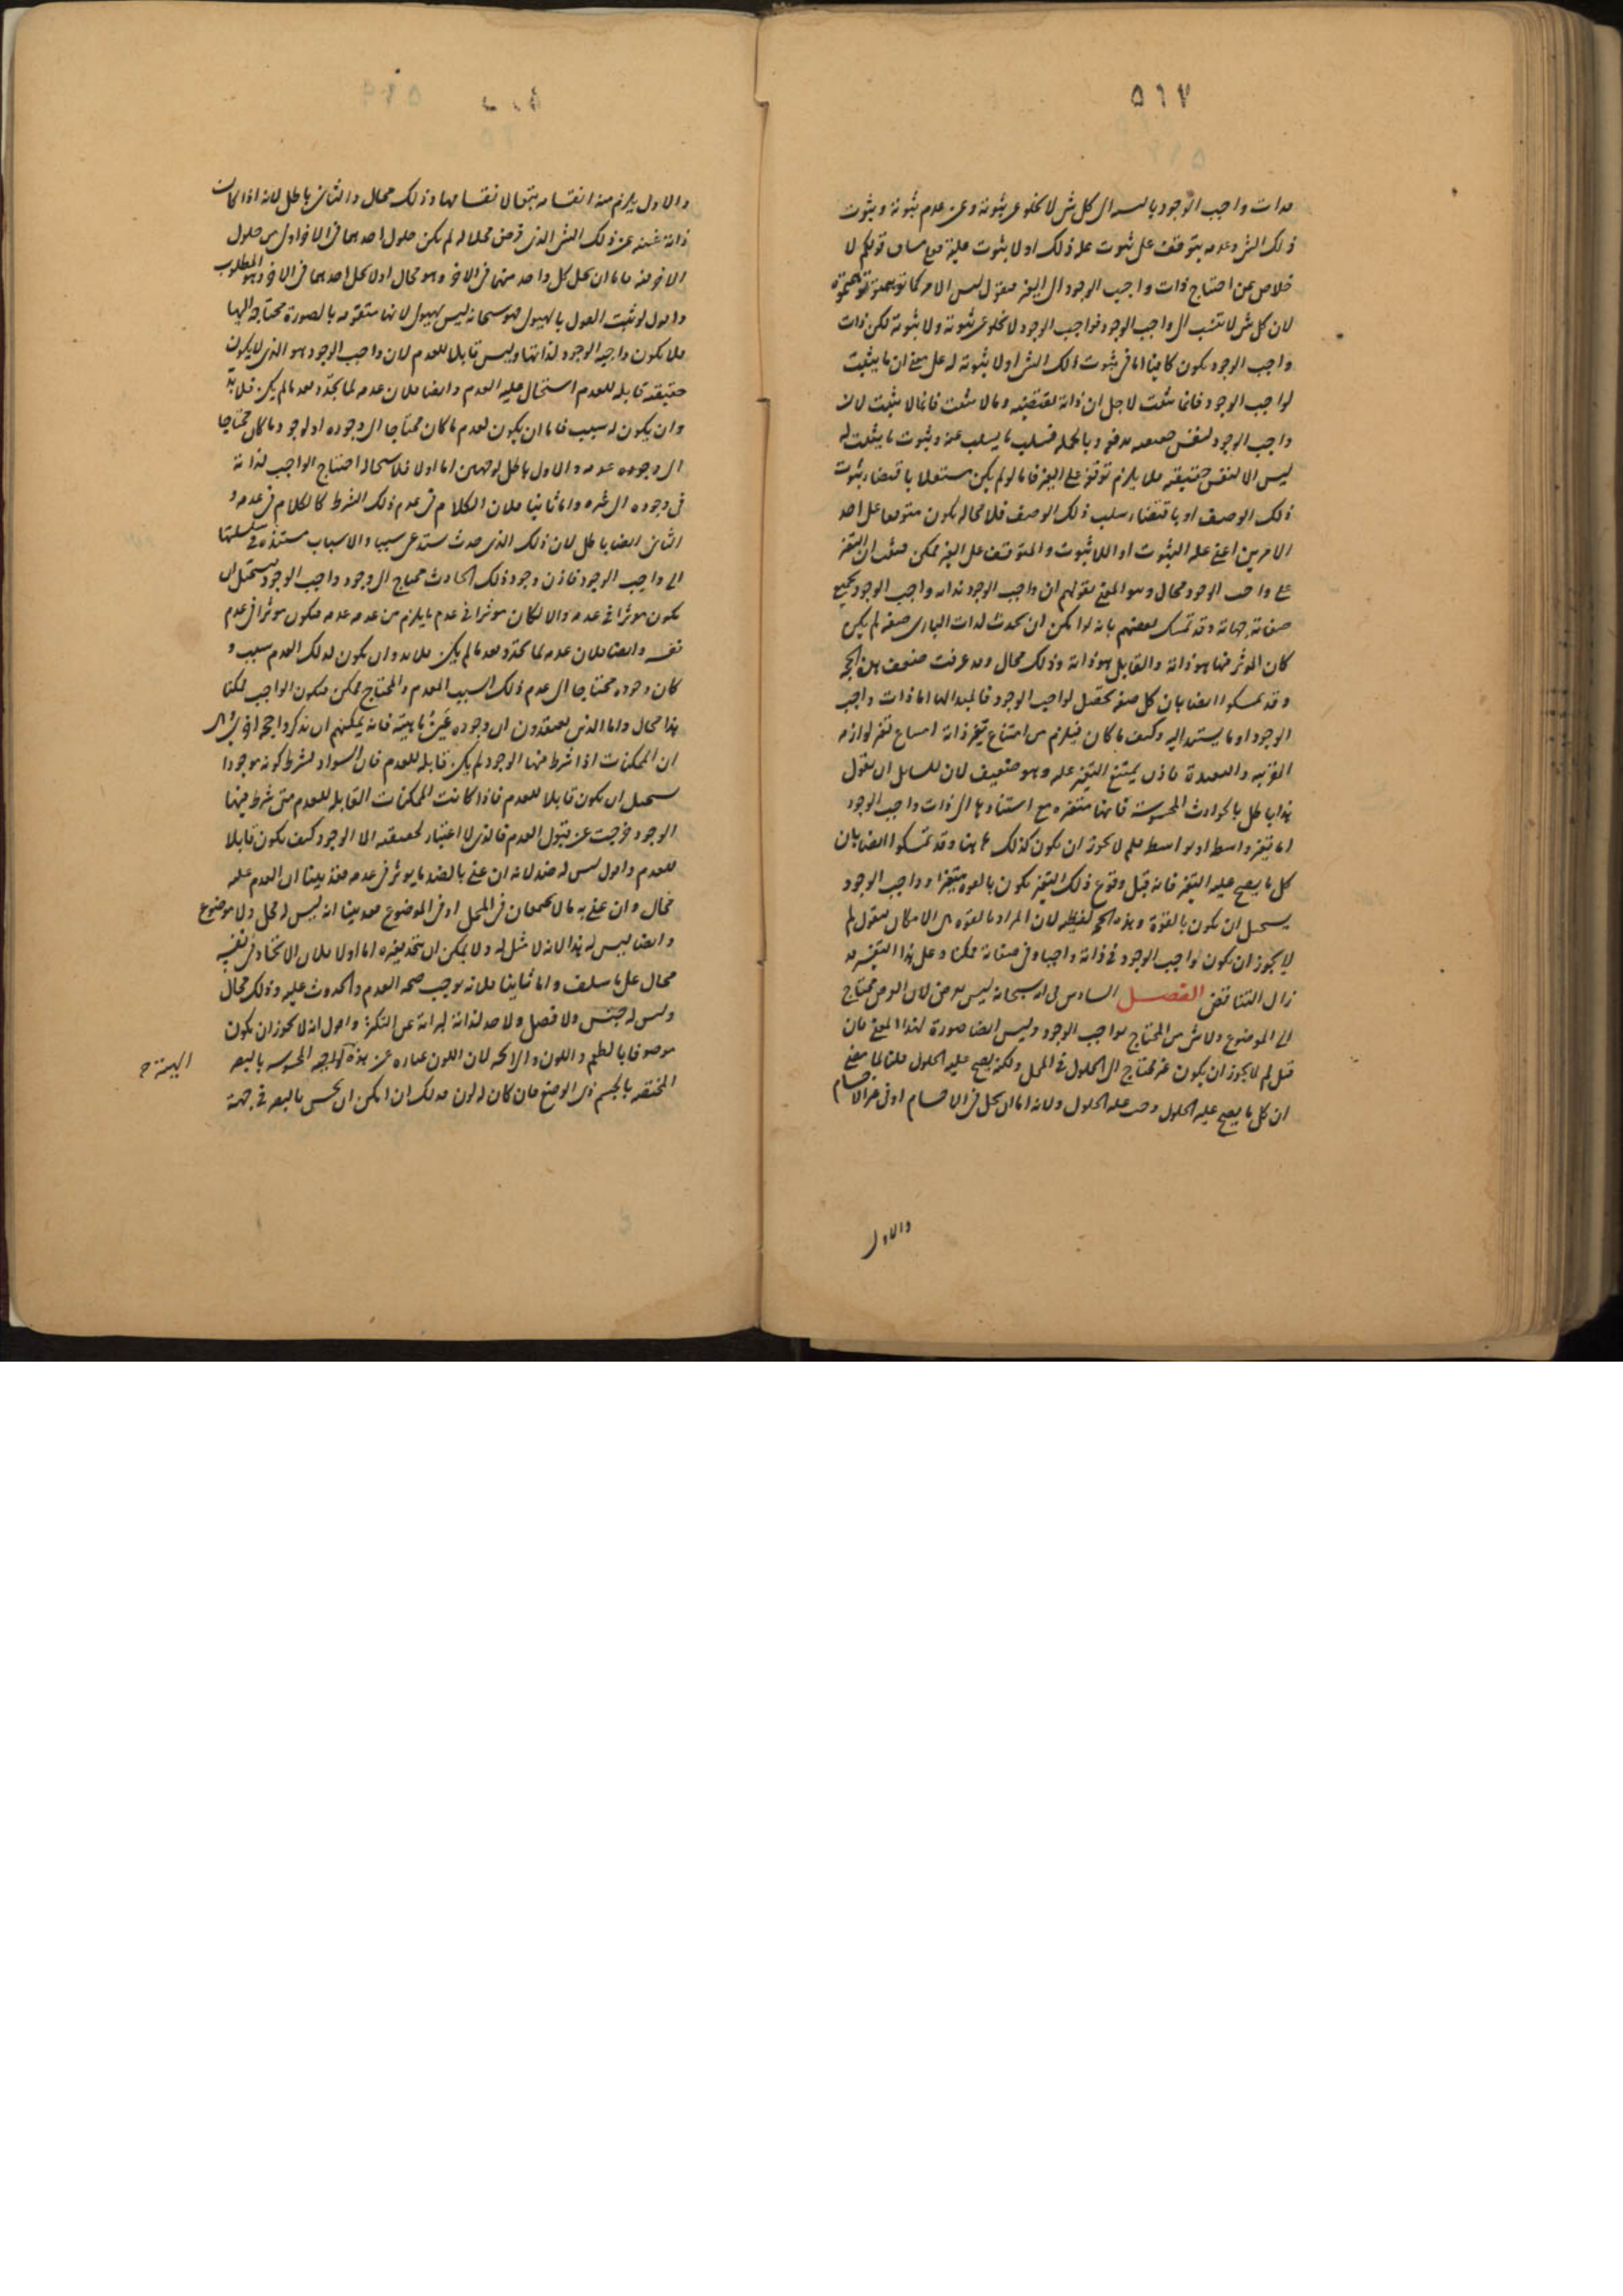 ٥٦٧
واجب الوجود بالنسبة الى كل شئ لا يخلو عن ثبوته وعن عدم ثبوته وثبوت
ذلك الشئ وعدمه يتوقف على ثبوت علة ذلك او لا ثبوت علته قولكم لا
خلاص عن احتياج ذات واجب الوجود الى الغير فنقول ليس الامر كما
لان كل شئ لا ينسب الى واجب الوجود فواجب الوجود لا يخلو عن ثبوته ولا ثبوته لكن ذات
واجب الوجود يكون كافيا اما فى ثبوت ذلك الشئ او لا ثبوته له على معنى ان ما يثبت
لواجب الوجود فانما يثبت لاجل ان ذاته تقتضيه وما لا يثبت فانما لا يثبت لان
واجب الوجود لنفس حقيقته يدفعه وبالجملة فسلب ما يسلب عنه وثبوت ما يثبت له
ليس الا لنفس حقيقته فلا يلزم توقفه على الغير فاما لو لم يكن مستقلا باقتضاء ثبوت
ذلك الوصف او باقتضاء سلب ذلك الوصف فلا محالة يكون متوقفا على احد
الامرين اعنى علة الثبوت او اللاثبوت والمتوقف على الغير ممكن فثبت ان التغير
على واجب الوجود محال وهو المعنى بقولهم ان واجب الوجود لذاته واجب الوجود بجميع
جهاته وقد تمسك بعضهم بانه لو امكن ان يحدث لذات البارى صفة لم يكن
كان المؤثر فيها هو ذاته والقابل هو ذاته وذلك محال وقد عرفت ضعف هذه الحجة
وقد تمسكوا ايضا بان كل صفة تحصل لواجب الوجود فالمبدأ لها اما ذات واجب
الوجود او ما يستند اليه وكيف ما كان فيلزم من امتناع تغير ذاته امتناع تغير لوازمه
القريبة والبعيدة فاذن يمتنع التغير عليه وهو ضعيف لان للسائل ان يقول
هذا باطل بالحوادث المحسوسة فانها متغيرة مع استنادها الى ذات واجب الوجود
اما بغير واسطة او بواسطة فلم لا يجوز ان يكون كذلك هاهنا وقد تمسكوا ايضا بان
كل ما يصح عليه التغير فانه قبل وقوع ذلك التغير يكون بالقوة متغيرا وواجب الوجود
يستحيل ان يكون بالقوة وهذه الحجة لفظية لان المراد بالقوة هى الامكان فنقول لم
لا يجوز ان يكون واجب الوجود فى ذاته واجبا وفى صفاته ممكنا وعلى هذا التفسير
زال التناقض الفصل السادس فى انه سبحانه ليس بعرض لان العرض محتاج
الى الموضوع ولا شئ من المحتاج بواجب الوجود وليس ايضا صورة لهذا المعنى فان
قيل لم لا يجوز ان يكون غير محتاج الى الحلول فى المحل ولكنه يصح عليه الحلول قلنا لما مضى
ان كل ما يصح عليه الحلول وجب عليه الحلول ولانه اما ان يحل فى الاجسام او فى غير الاجسام
والاول
والاول يلزم منه انقسامه بتبعا لانقسامها وذلك محال والثانى باطل لانه اذا كان
ذاته غنية عن ذلك الشئ الذى فرض محلا له لم يكن حلول احدهما فى الاخر اولى من حلول
الاخر فيه فاما ان يحل كل واحد منهما فى الاخر وهو محال او لا يحل احدهما فى الاخر وهو المطلوب
واقول لو ثبت القول بالهيولى فهو سبحانه ليس بهيولى لانها متقومة بالصورة محتاجة اليها
فلا يكون واجبة الوجود لذاتها وليس قابلا للعدم لان واجب الوجود هو الذى لا يكون
حقيقته قابلة للعدم استحال عليه العدم وايضا فلان عدمه لما تجدد بعد ما لم يكن فلا بد
وان يكون له سبب فاما ان يكون لعدم ما كان محتاجا الى وجوده او لوجود ما كان محتاجا
الى وجوده عدمه والاول باطل لوجهين اما اولا فلاستحالة احتياج الواجب لذاته
فى وجوده الى غيره واما ثانيا فلان الكلام فى عدم ذلك الشرط كالكلام فى عدمه و
الثانى ايضا باطل لان ذلك الذى حدث يستدعى سببا والاسباب مستندة فى سلسلتها
الى واجب الوجود فاذن وجود ذلك الحادث محتاج الى وجود واجب الوجود يستحيل ان
يكون مؤثرا فى عدمه والا لكان مؤثرا فى عدم ما يلزم من عدمه عدمه فيكون مؤثرا فى عدم
نفسه وايضا فلان عدمه لما تجدد بعد ما لم يكن فلا بد وان يكون لذلك العدم سبب و
كان وجوده محتاجا الى عدم ذلك السبب المعدم والمحتاج ممكن فيكون الواجب ممكنا
هذا محال واما الذين يعتقدون ان وجوده غير ماهيته فانه يمكنهم ان يذكروا حجة اخرى
ان الممكنات اذا شرط فيها الوجود لم يكن قابلة للعدم فان السواد بشرط كونه موجودا
يستحيل ان يكون قابلا للعدم فاذا كانت الممكنات القابلة للعدم متى شرط فيها
الوجود خرجت عن قبول العدم فالذى لا اعتبار لحقيقته الا الوجود كيف يكون قابلا
للعدم واقول ليس له ضد لانه ان عنى بالضد ما يؤثر فى عدمه فقد بينا ان العدم عليه
محال وان عنى به ما لا يجتمعان فى المحل او فى الموضوع فقد بينا انه ليس له محل ولا موضوع
وايضا ليس له ند لانه لا مثل له ولا يمكن ان يتحد بغيره اما اولا فلان الاتحاد فى نفسه
محال على ما سلف واما ثانيا فلانه يوجب صحة العدم والحدوث عليه وذلك محال
وليس له جنس ولا فصل ولا حد لذاته لبراءته عن التكثر واقول انه لا يجوز ان يكون
موصوفا بالطعم واللون والرائحة لان اللون عبارة عن هذه الهيئة المحسوسة بالبصر
الهيئة ح
المختصة بالجسم ذى الوضع فان كان له لون فذلك ان امكن ان يحس بالبصر فى جهة